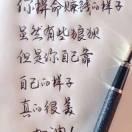 你拼命赚钱的样子
虽然有些狼狈
但是你自己靠
自己的样子
真的很美
加油!